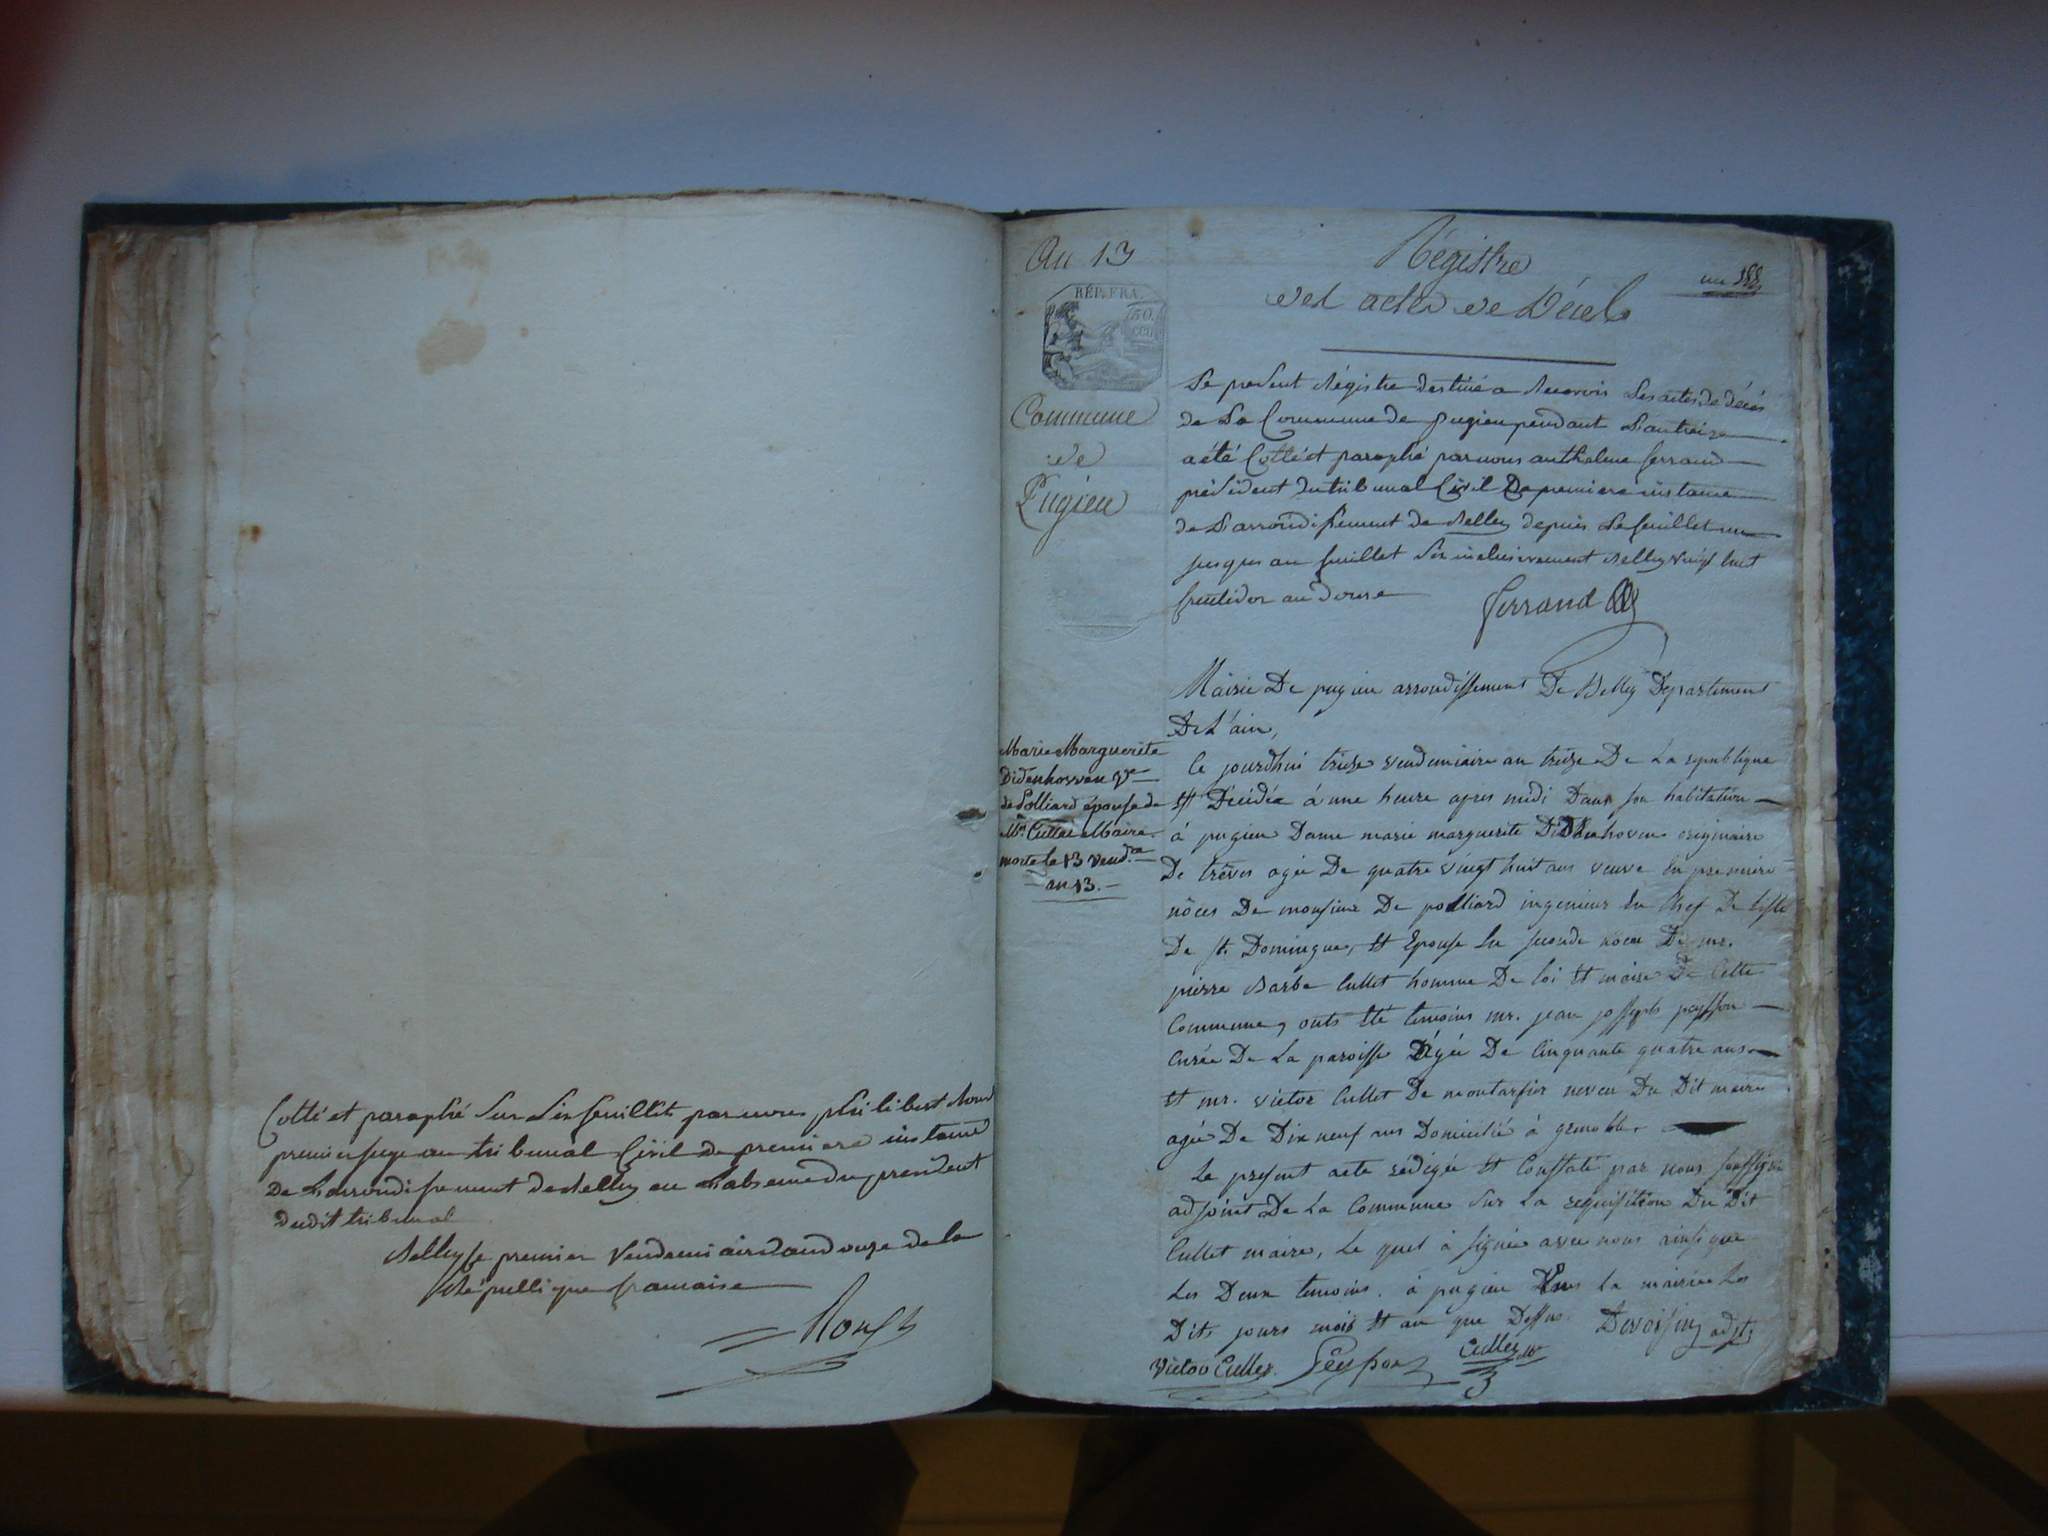 Cotté et paraphé sur six feuillets par nous philibert
premier juge au tribunal Civil de premiere instance
de L'arrondissement de Belley en L'absence du président
dudit tribunal
Belley le premier Vendemiaire an douze de la
République francaise
An 13
RÉP. FRA.
50.
Commune
de
Pugieu
Régistre
des actes de Décès
Le present Régistre destiné a Recevoir Les actes de décès
de La Commune de pugieu pendant L'an treize
a été Cotté et paraphé par nous anthelme ferrand
président du tribunal Civil De premiere instance
de L'arrondissement de Belley depuis Le feuillet un
jusques au feuillet Six inclusivement Belley vingt huit
fructidor an douze
ferrand
Mairie De pugieu arrondissement De Belley Departement
De L'ain,
Marie Marguerite
Didenhowen vve
de Polliard épouse de
Mr. Cullet Maire
morte le 13 vend.re
an 13.
Ce jourdhui treize vendemiaire an treize De La republique
Est Décédée à une heure apres midi Dans son habitation
à pugieu Dame marie marguerite Didenhoven originaire
De trêves agée De quatre vingt huit ans veuve En premiere
nôces De monsieur De polliard ingenieur En Chef De L'isle
De st. Domingue, Et Epouse En seconde nôces De mr.
pierre Barbe Cullet homme De loi Et maire De Cette
Commune, onts Eté temoins mr. jean josseph peysson
Curée De La paroisse Agée De Cinquante quatre ans
Et mr. victor Cullet De montarfier neveu Du Dit maire
agée De Dix neuf ans Domicilié à grenoble.
Le present acte rédigée Et Constaté par nous soussignée
adjoint De La Commune Sur La requisition Du Dit
Cullet maire, Le quel à signée avec nous ainsi que
Les Deux temoins. à pugieu Dans la mairie Les
Dits jours mois Et an que Dessus. Devoisin adjt.
Victor Cullet. Peysson Cullet